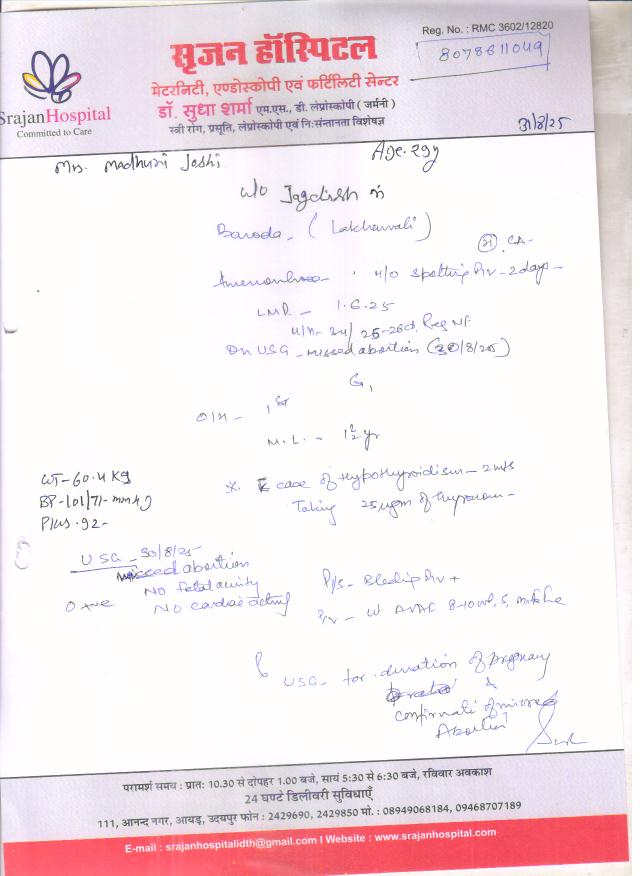 Reg. No. : RMC 3602/12820
8078611049
सृजन हॉस्पिटल
मेटरनिटी, एण्डोस्कोपी एवं फर्टिलिटी सेन्टर
डॉ. सुधा शर्मा एम.एस., डी. लेप्रोस्कोपी ( जर्मनी )
स्त्री रोग, प्रसूति, लेप्रोस्कोपी एवं निःसंतानता विशेषज्ञ
SrajanHospital
Committed to Care
31/8/25
Mrs. Madhuri Joshi Age. 29y
w/o Jagdish
Baroda - (Lakhawali)
CA -
Amenorrhoea H/O Spotting P/V - 2 days -
LMP. - 1.6.25
M/H - 3-4/ 25-26d. Reg NF
On USG - missed abortion (30/8/25)
G1
O/H - 1st
M.L. - 1 1/2 yr
WT-60.4 Kg
BP-101/71-mmHg
Plus.92-
* K case of Hypothyroidism - 2 mts
Taking 25 ugm of thyronorm -
USG - 30/8/25
Missed abortion
No fetal activity
No cardiac activity
O +ve
P/S - Bleeding P/V +
P/V - Ut AVAF 8-10 wk, S, mobile
USG - for duration of pregnancy
&
confirmati of missed
Abortion
परामर्श समय : प्रातः 10.30 से दोपहर 1.00 बजे, सायं 5:30 से 6:30 बजे, रविवार अवकाश
24 घण्टे डिलीवरी सुविधाएँ
111, आनन्द नगर, आयड़, उदयपुर फोन : 2429690, 2429850 मो. : 08949068184, 09468707189
E-mail : srajanhospitalidth@gmail.com I Website : www.srajanhospital.com